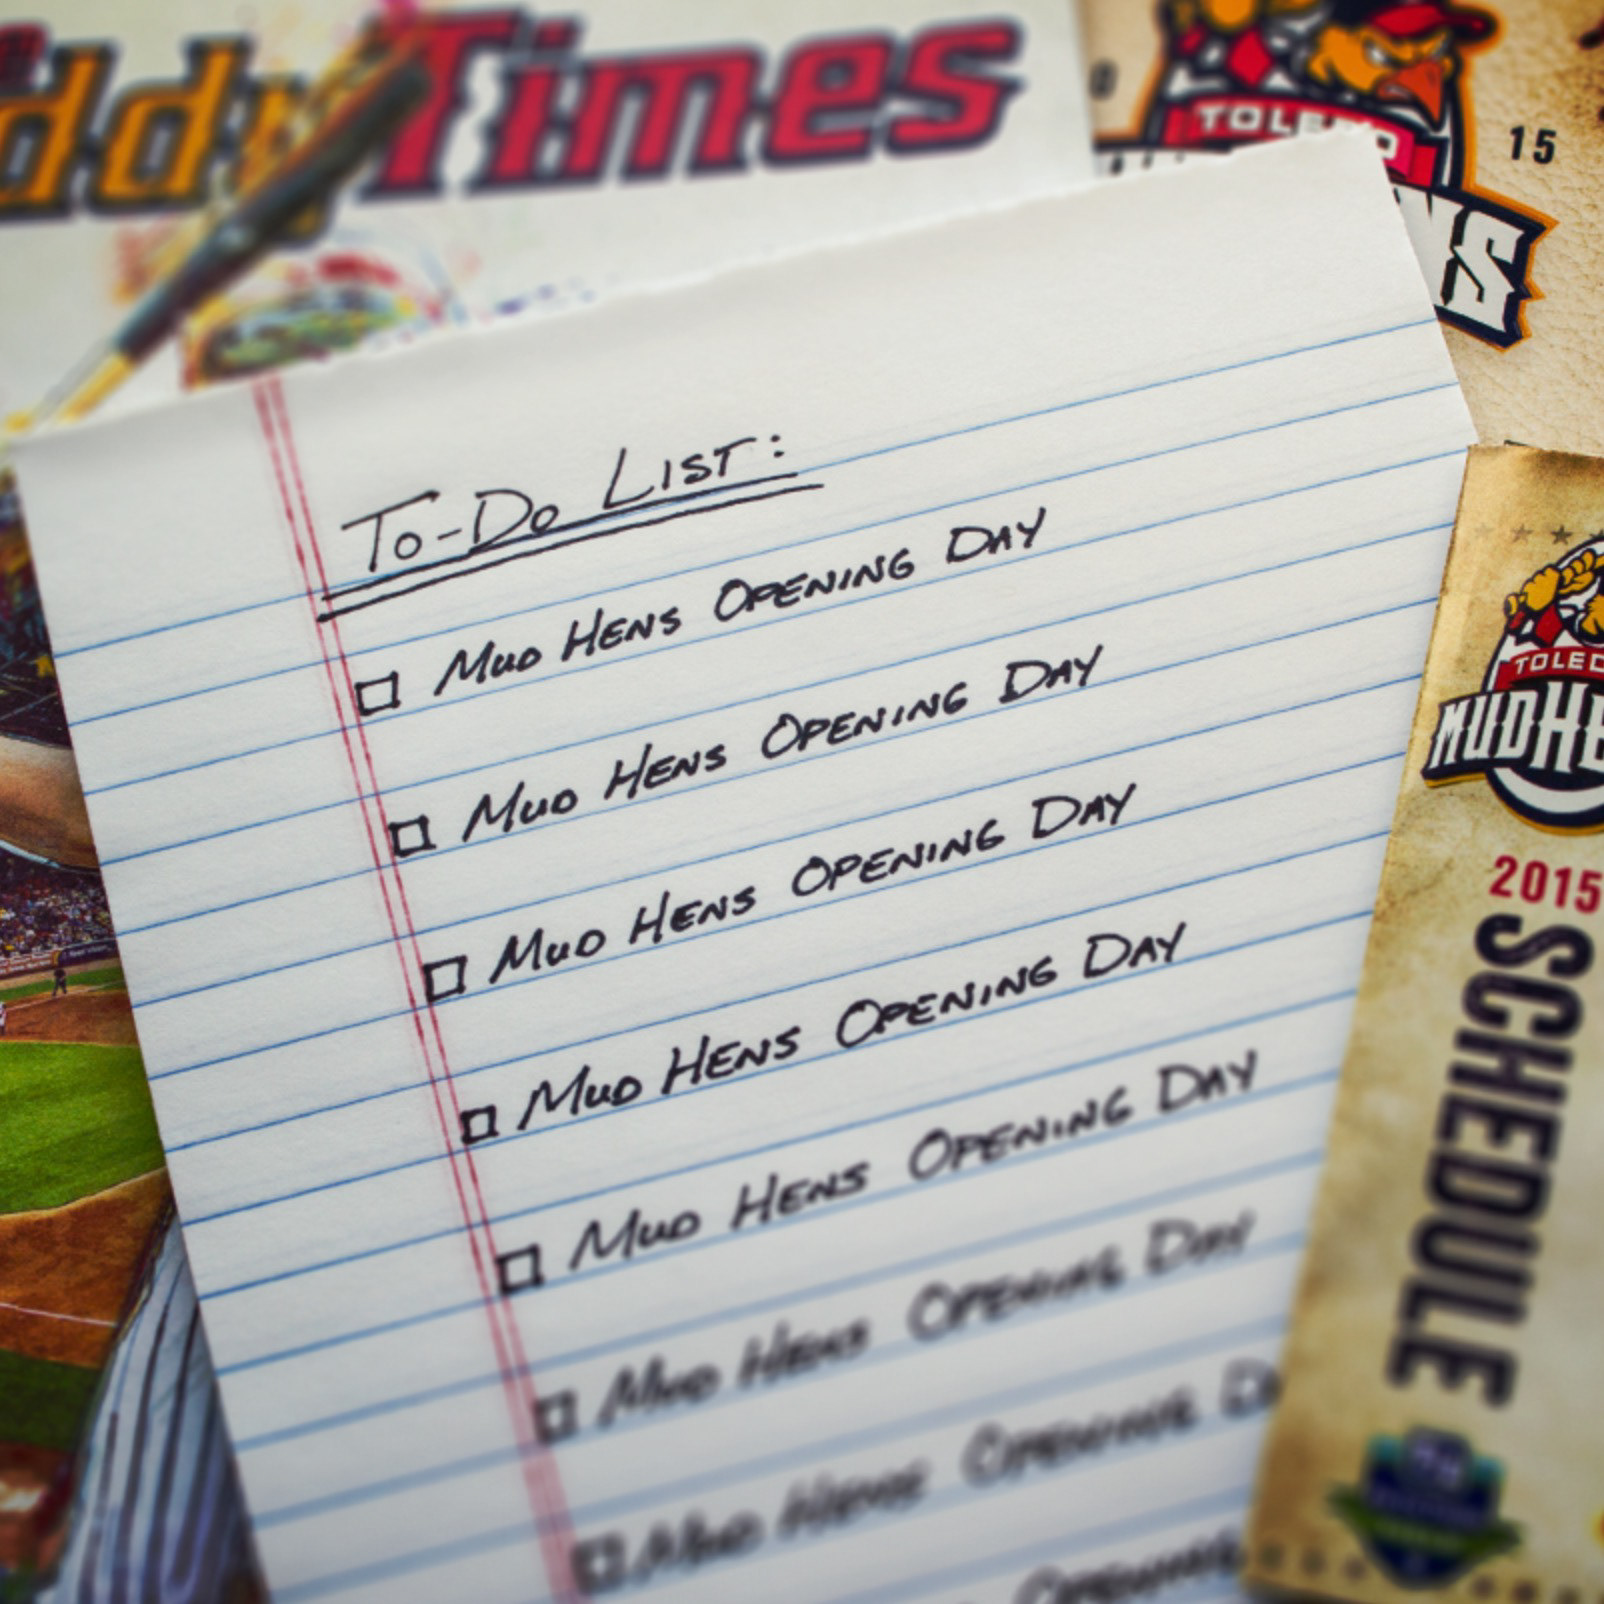 ddy Times
TOLEDO
NS
15
To-Do List:
Mud Hens Opening Day
Mud Hens Opening Day
Mud Hens Opening Day
Mud Hens Opening Day
Mud Hens Opening Day
Mud Hens Opening Day
Mud Hens Opening D
Opening
TOLED
MUDHE
2015
SCHEDULE